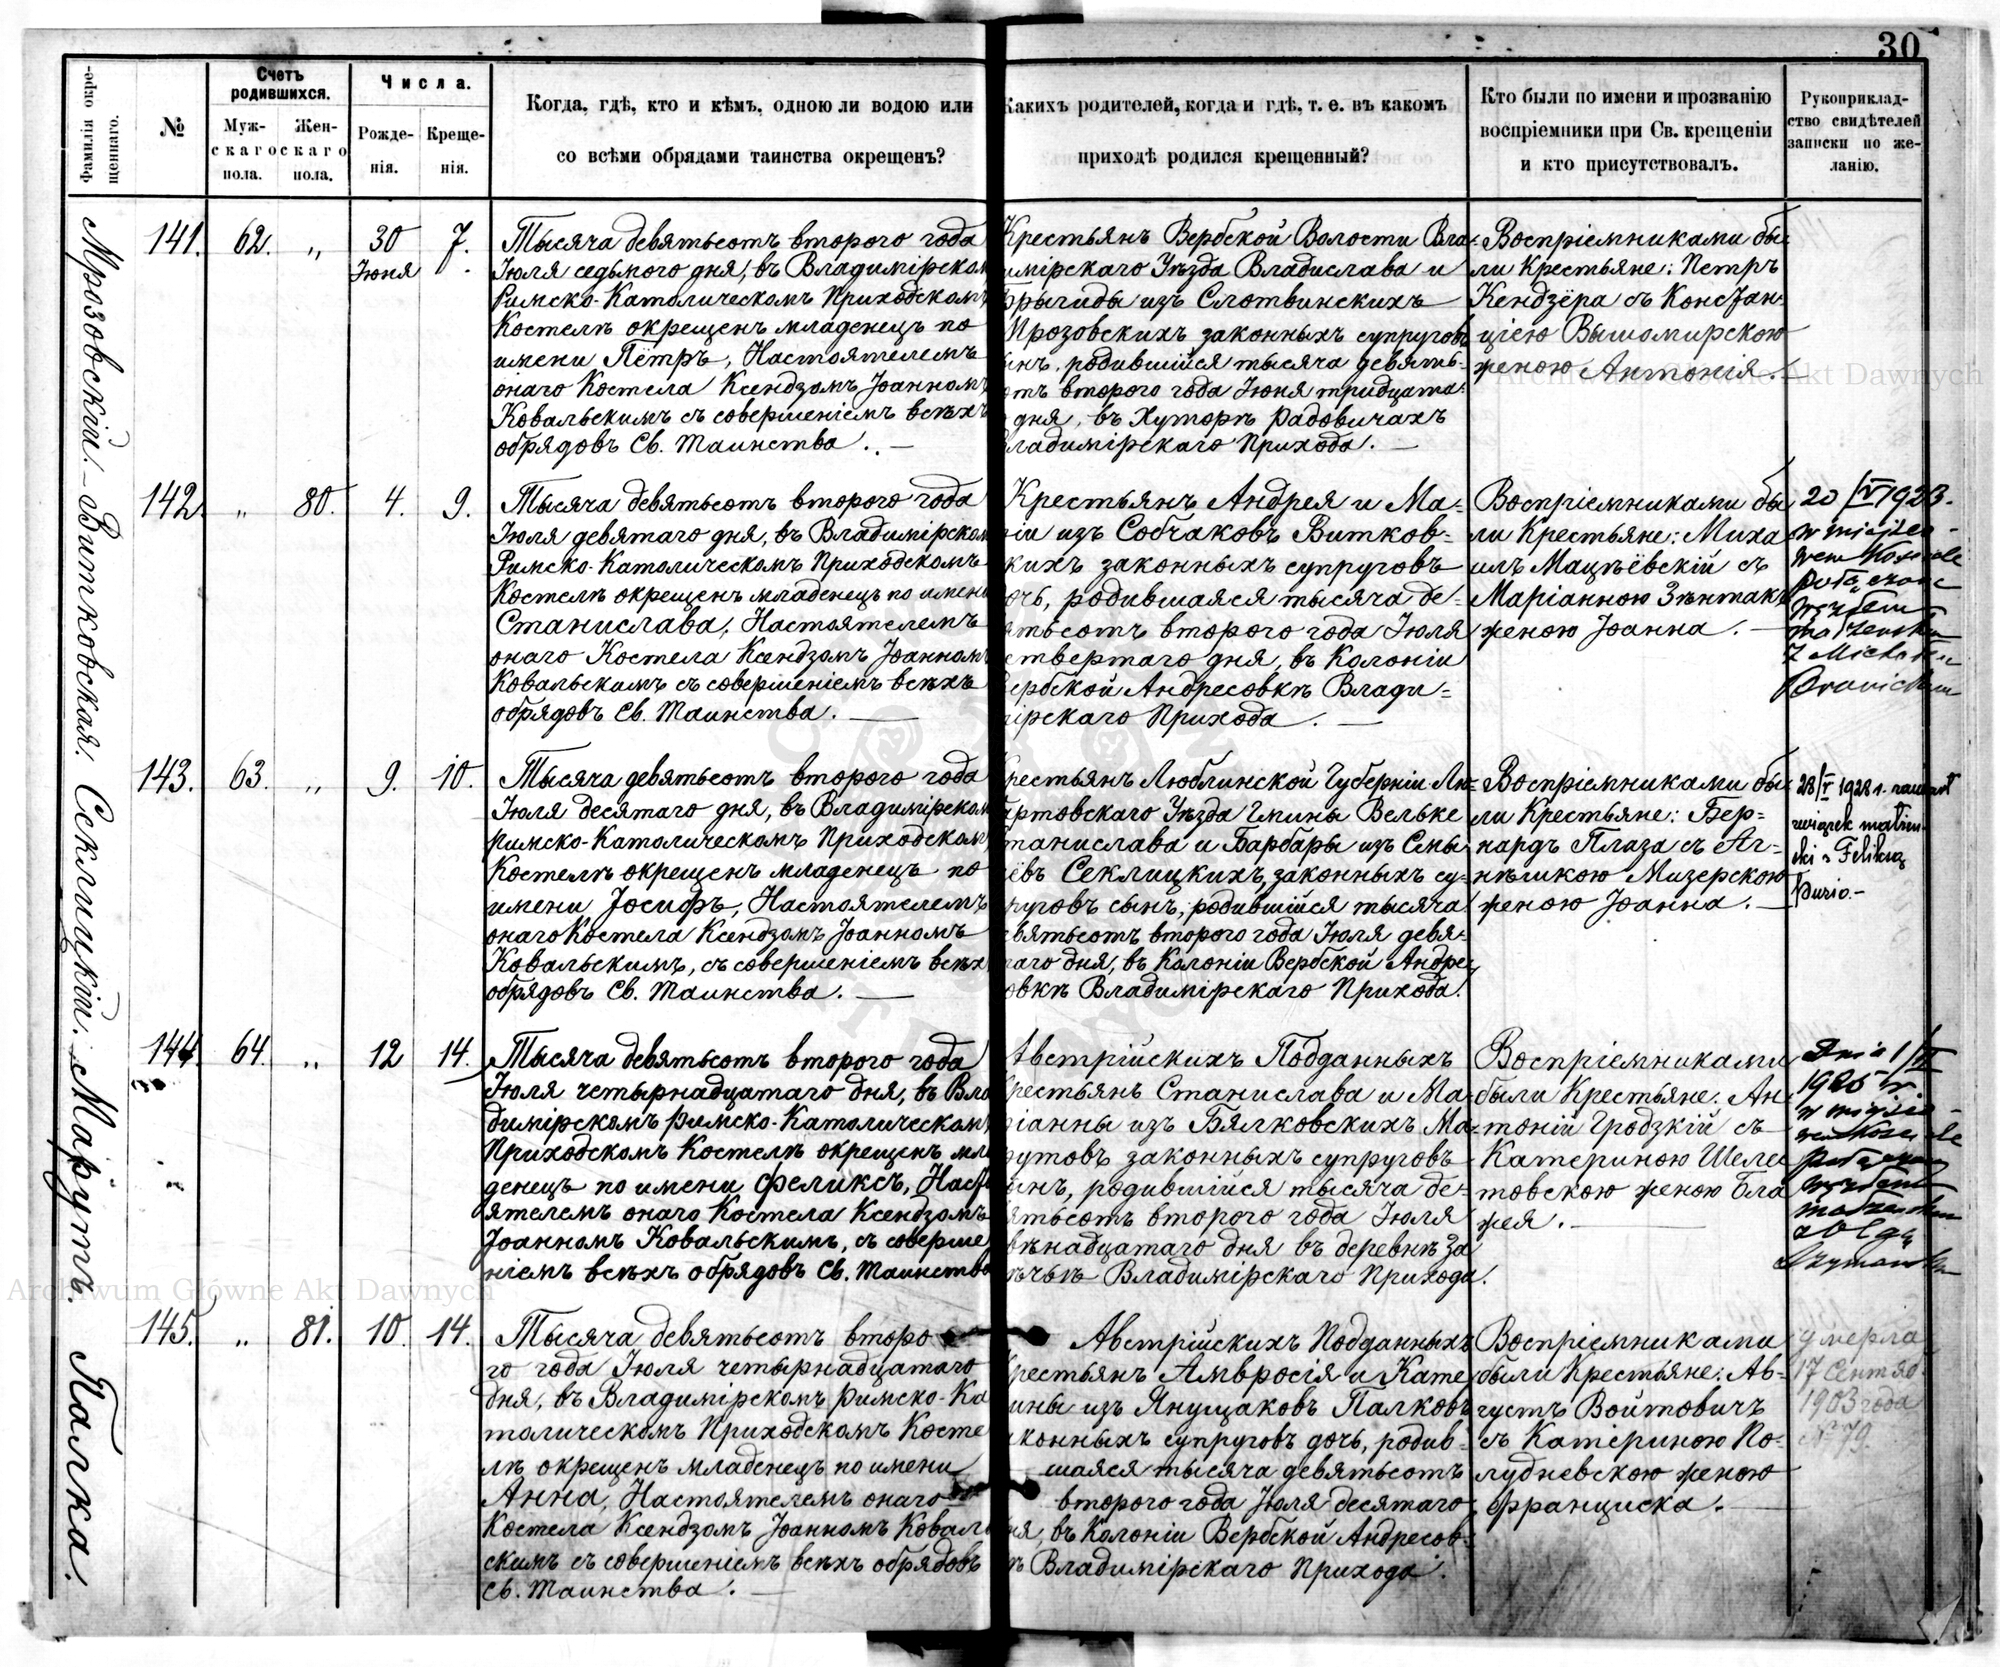 30
Фамилія окрещеннаго.
№
Счетъ родившихся.
Мужскаго пола.
Женскаго пола.
Числа.
Рожденія.
Крещенія.
Когда, гдѣ, кто и кѣмъ, одною ли водою или
со всѣми обрядами таинства окрещенъ?
Какихъ родителей, когда и гдѣ, т. е. въ какомъ
приходѣ родился крещенный?
Кто были по имени и прозванію
воспріемники при Св. крещеніи
и кто присутствовалъ.
Рукоприклад-
ство свидѣтелей
записки по же-
ланію.
Мрозовскій. – Витковская. Секлицкій. Марутъ. Палка.
141. 62. „ 30 Іюня 7.
Тысяча девятьсотъ второго года
Іюля седьмого дня, въ Владимірском
Римско-Католическомъ Приходскомъ
Костелѣ окрещенъ младенецъ по
имени Пётръ, Настоятелемъ
онаго Костела Ксендзомъ Іоанномъ
Ковальскимъ съ совершеніемъ всѣхъ
обрядовъ Св. Таинства. –
Крестьянъ Вербской Волости Вла-
имірскаго Уѣзда Владислава и
Брыгиды изъ Слотвинскихъ
Мрозовскихъ законныхъ супруговъ
ынъ, родившійся тысяча девять-
отъ второго года Іюня тридцата-
дня, въ Хуторѣ Радовичахъ
ладимірскаго Прихода. –
Воспріемниками бы-
ли Крестьяне: Петръ
Кендзёра съ Констан-
ціею Вышомирскою
женою Антонія. –
142. „ 80. 4. 9.
Тысяча девятьсотъ второго года
Іюля девятаго дня, въ Владимірском
Римско-Католическомъ Приходскомъ
Костелѣ окрещенъ младенецъ по имени
Станислава, Настоятелемъ
онаго Костела Ксендзомъ Іоанномъ
Ковальскимъ съ совершеніемъ всѣхъ
обрядовъ Св. Таинства. –
Крестьянъ Андрея и Ма-
ріи изъ Собчаковъ Витков-
кихъ законныхъ супруговъ
очь, родившаяся тысяча де-
ятьсотъ второго года Іюля
етвертаго дня, въ Колоніи
ербской Андресовкѣ Влади-
мірскаго Прихода. –
Воспріемниками бы
ли Крестьяне: Миха
илъ Мацѣёвскій съ
Маріанною Зѣнтакъ
женою Іоанна. –
20/IV 1923.
w miejsco-
wem Kościele
połączona
węzłem
małżeńskim
z Michałem
143. 63. „ 9. 10.
Тысяча девятьсотъ второго года
Іюля десятаго дня, въ Владимірском
Римско-Католическомъ Приходскомъ
Костелѣ окрещенъ младенецъ по
имени Іосифъ, Настоятелемъ
онаго Костела Ксендзомъ Іоанномъ
Ковальскимъ, съ совершеніемъ всѣхъ
обрядовъ Св. Таинства. –
рестьянъ Люблинской Губерніи Лю-
артовскаго Уѣзда Гмины Вельке
танислава и Барбары изъ Смы-
ёвъ Секлицкихъ, законныхъ су-
руговъ сынъ, родившійся тысяча
евятьсотъ второго года Іюля девя-
таго дня, въ Колоніи Вербской Андре-
овкѣ Владимірскаго Прихода.
Воспріемниками бы-
ли Крестьяне: Бер-
нардъ Плаза съ Аг-
нѣшкою Мизерскою
женою Іоанна. –
28/V 1928 r. zawarł
związek małżeń-
ski z Feliksą
144. 64. „ 12 14.
Тысяча девятьсотъ второго года
Іюля четырнадцатаго дня, въ Вла
димірскомъ Римско-Католическомъ
Приходскомъ Костелѣ окрещенъ мла
денецъ по имени Феликсъ, Насто
ятелемъ онаго Костела Ксендзомъ
Іоанномъ Ковальскимъ, съ соверше
ніемъ всѣхъ обрядовъ Св. Таинства
Австрійскихъ Подданныхъ
рестьянъ Станислава и Ма-
ріанны изъ Бялковскихъ Ма-
рутовъ законныхъ супруговъ
ынъ, родившійся тысяча де-
ятьсотъ второго года Іюля
вѣнадцатаго дня въ деревнѣ За
ѣчьѣ Владимірскаго Прихода.
Воспріемниками
были Крестьяне: Ан-
тоній Гродзкій съ
Катериною Шеле
товскою женою Бла
жея. –
Dnia 1/II
1925 r.
w miejsco-
wem Kościele
połączony
węzłem
małżeńskim
z Olgą
145. „ 81. 10. 14.
Тысяча девятьсотъ второ
го года Іюля четырнадцатаго
дня, въ Владимірскомъ Римско-Ка
толическомъ Приходскомъ Косте
лѣ окрещенъ младенецъ по имени
Анна, Настоятелемъ онаго
Костела Ксендзомъ Іоанномъ Коваль
скимъ съ совершеніемъ всѣхъ обрядовъ
Св. Таинства. –
Австрійскихъ Подданныхъ
рестьянъ Амвросія и Кате
ины изъ Янущаковъ Палковъ
аконныхъ супруговъ дочь, родив-
шаяся тысяча девятьсотъ
второго года Іюля десятаго
ня, въ Колоніи Вербской Андресов-
ѣ Владимірскаго Прихода.
Воспріемниками
были Крестьяне: Ав-
густъ Войтовичъ
съ Катериною По-
лудневскою женою
Франциска. –
Умерла
17 Сентяб.
1903 года
№ 79.
Archiwum Główne Akt Dawnych
Akt Dawnych